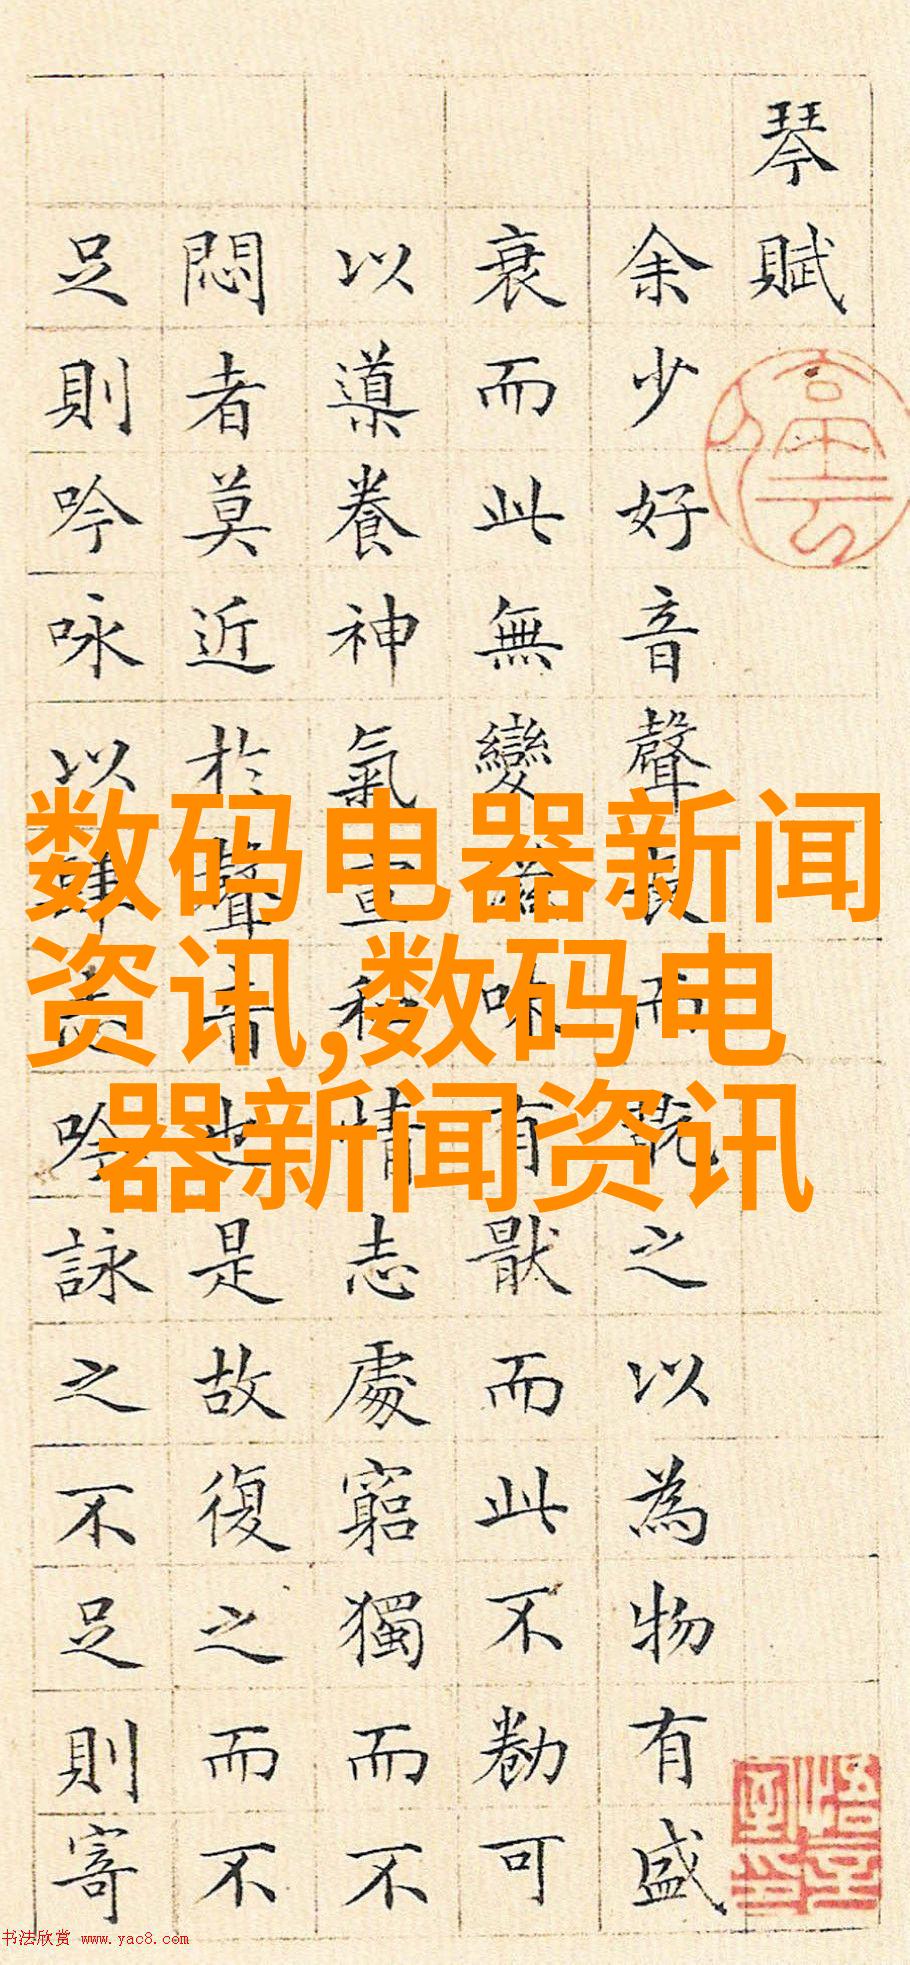 琴賦
余少好音聲長而翫之以為物有盛
衰而此無變滋味有猒而此不勌可
以導養神氣宣和情志處窮獨而不
悶者莫近於聲音也是故復之而不
足則吟咏以肆志吟詠之不足則寄
数码电器新闻
资讯,数码电
器新闻资讯
书法欣赏 www.yac8.com